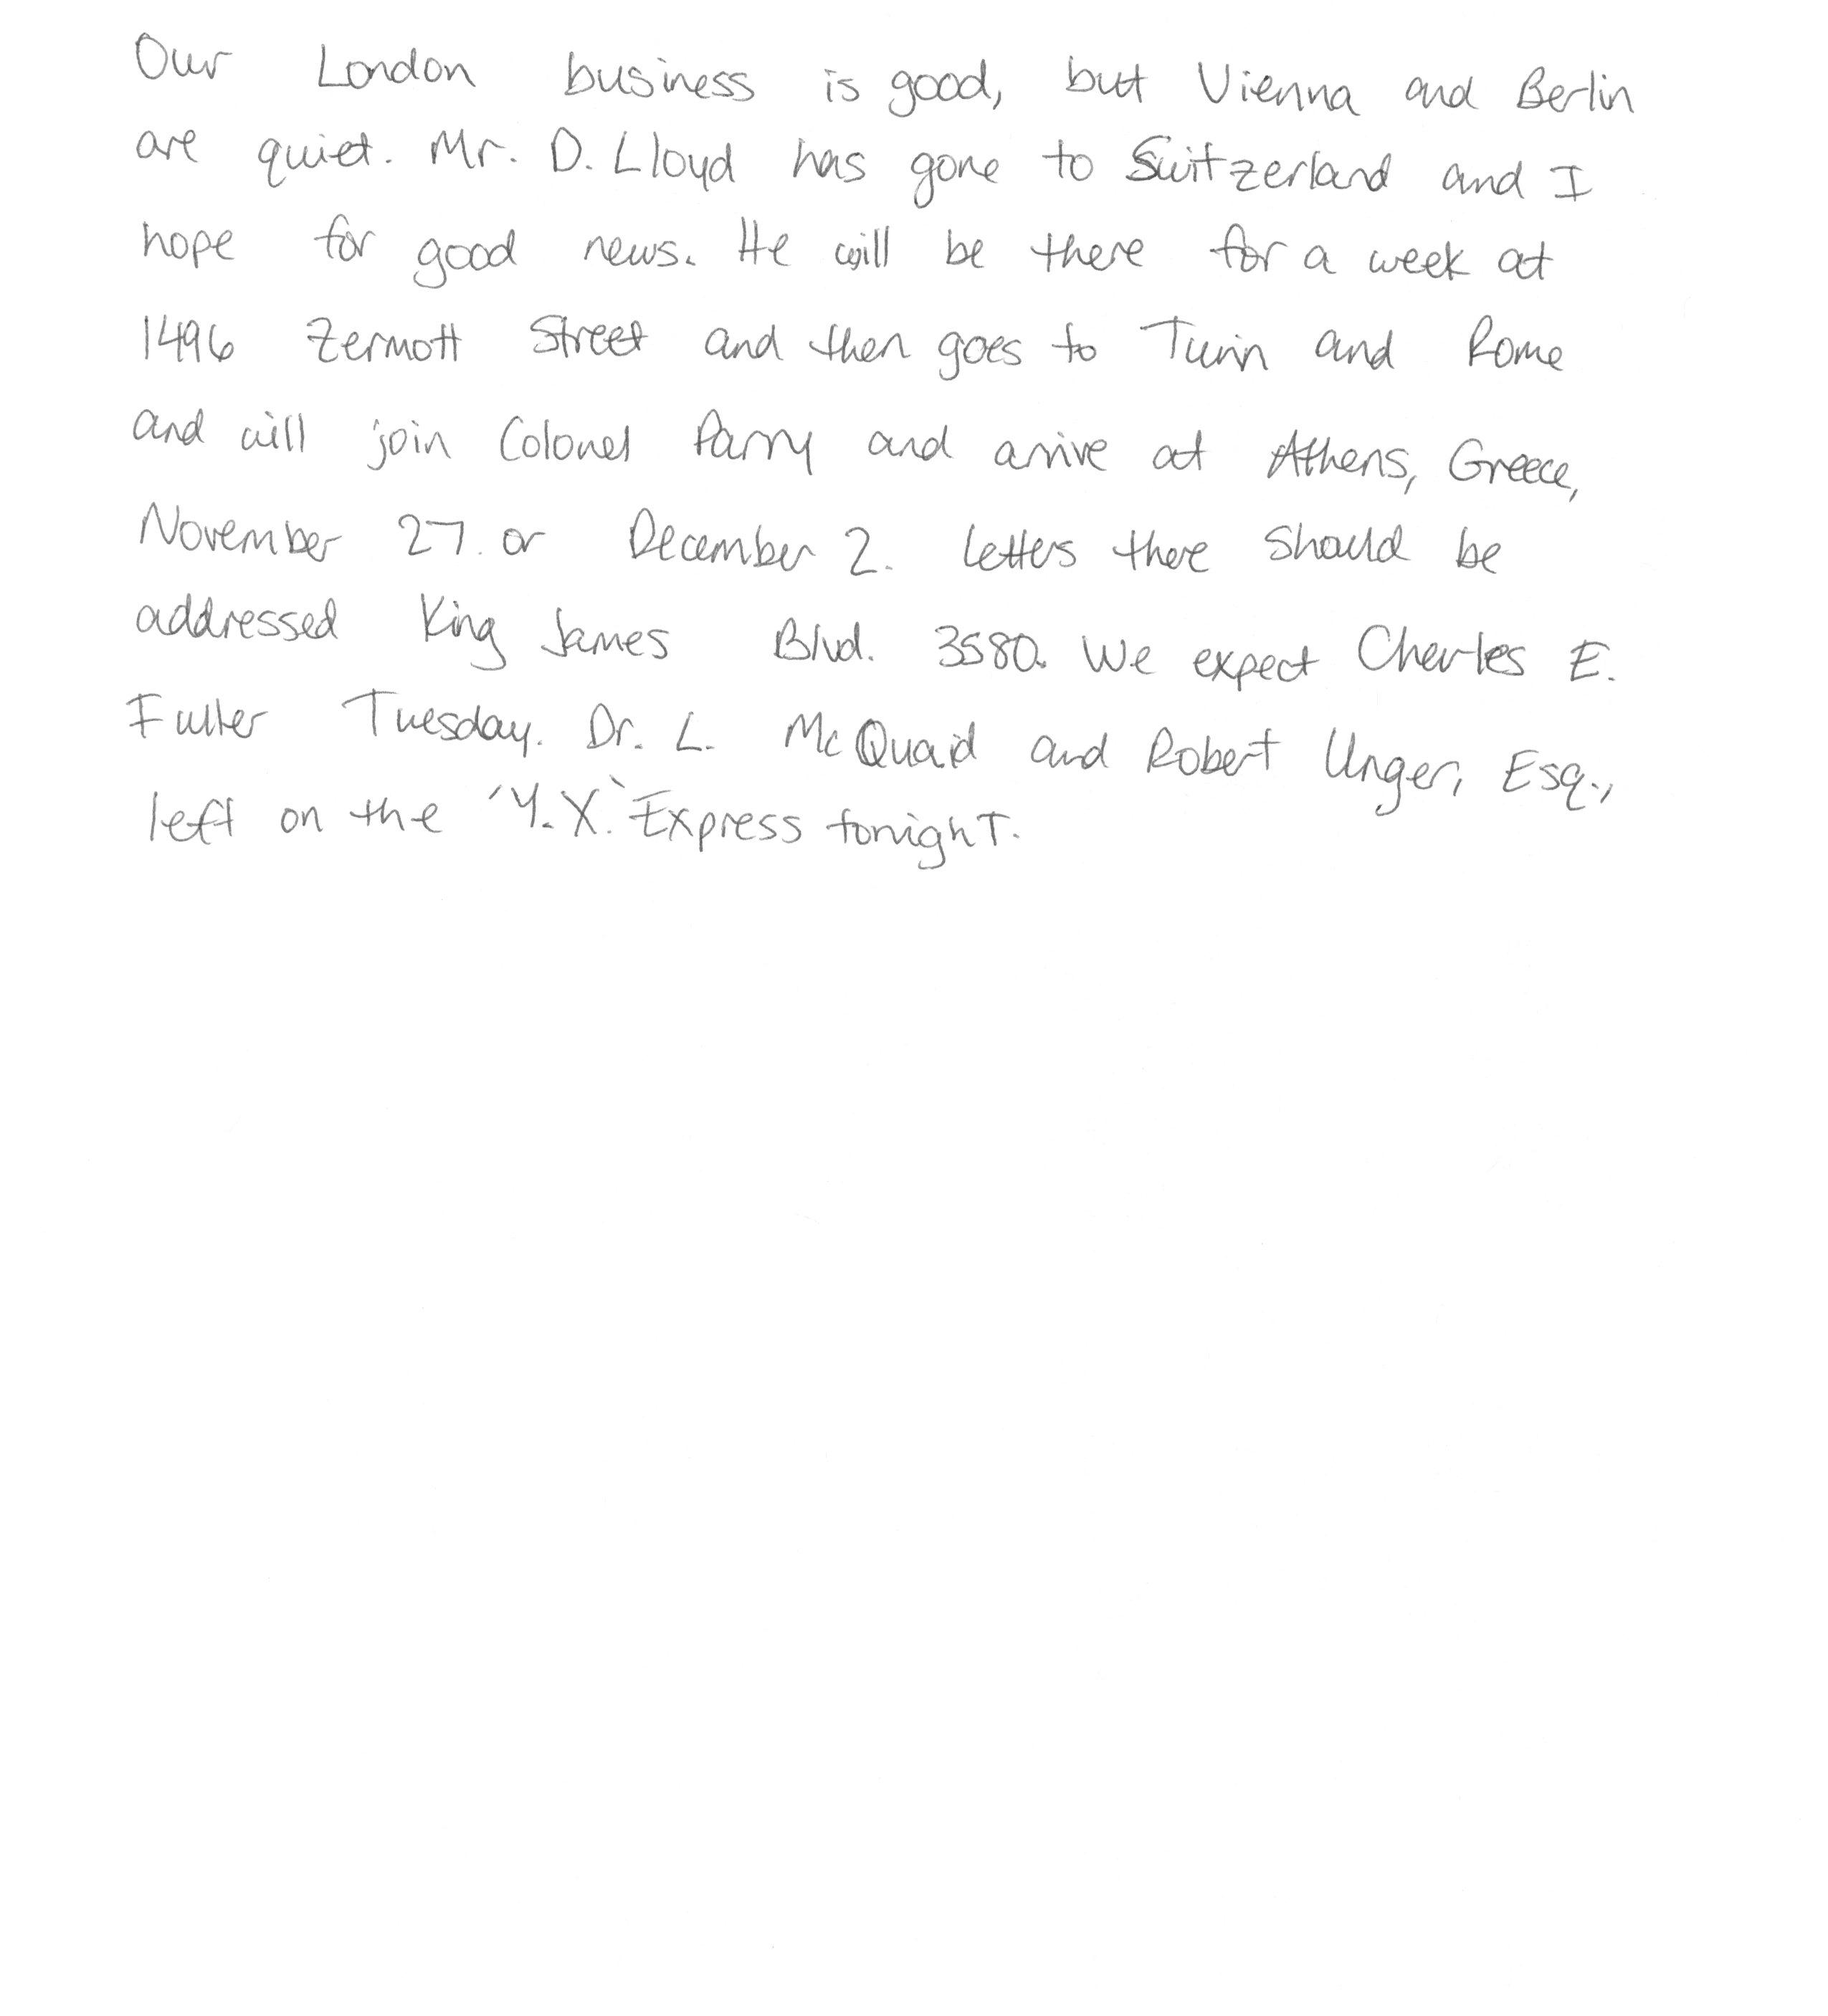 Our London business is good, but Vienna and Berlin
are quiet. Mr. D. Lloyd has gone to Switzerland and I
hope for good news. He will be there for a week at
1496 Zermott Street and then goes to Turin and Rome
and will join Colonel Parry and arrive at Athens, Greece,
November 27. or December 2. Letters there should be
addressed King James Blvd. 3580. We expect Charles E.
Fuller Tuesday. Dr. L. McQuaid and Robert Unger, Esq.,
left on the 'Y.X.' Express tonight.